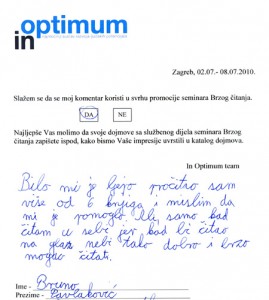 optimum
in
Zagreb, 02.07.- 08.07.2010.
Slažem se da se moj komentar koristi u svrhu promocije seminara Brzog čitanja.
DA NE
Najljepše Vas molimo da svoje dojmove sa službenog dijela seminara Brzog
čitanja zapišete ispod, kako bismo Vaše impresije uvrstili u katalog dojmova.
In Optimum team
Bilo mi je ljepo pročitao sam
više od 6 knjiga i mislim da
mi je pomoglo. Ali samo kad
čitam u sebi jer kad bi čitao
na glas nebi tako dobro i brzo
mogao čitati.
Ime - Bruno
Prezime - Pavlaković